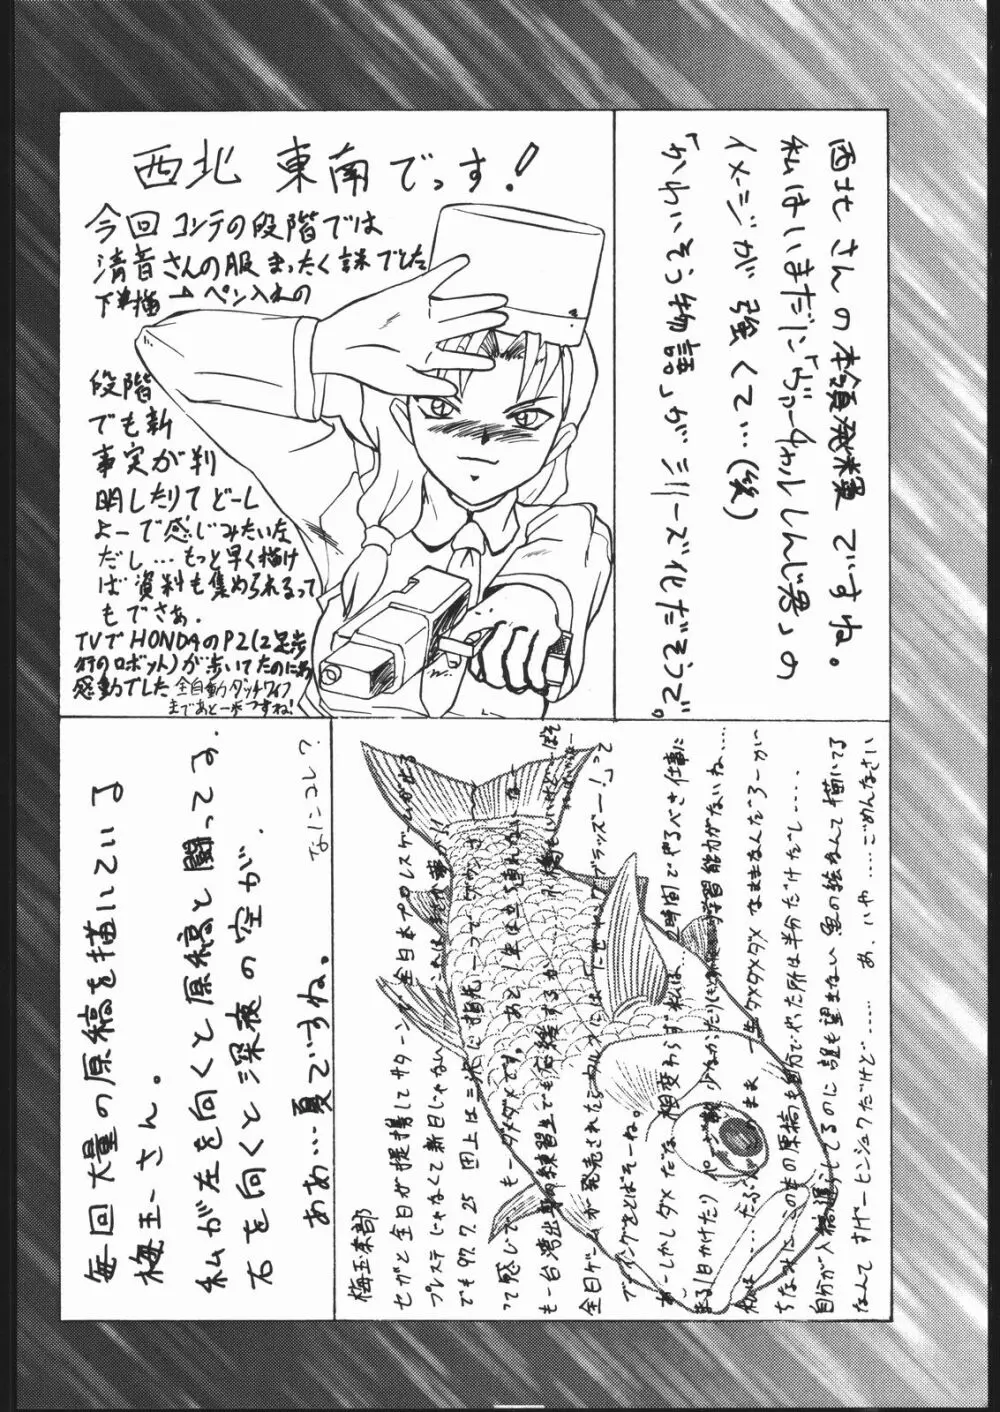 西北 東南でっす!
今回コンテの段階では
清音さんの服まったく謎でした
下描→ペン入れの
段階
でも新
事実が判
明したりてどーし
よーで感じみたいな
だし…もっと早く描け
ば資料も集められるって
もでさぁ.
TVでHONDAのP2(2足歩
行のロボット)が歩いてたのには
感動でした 全自動ダッチワイフ
まであと一歩っすね!
西北さんの本領発揮ですね。
私はいまだに「ヴァーチャルしんじ君」の
イメージが強くて…(笑)
「かわいそう物語」がシリーズ化だそうで。
毎回大量の原稿を描いている
梅玉さん。
私が左を向くと原稿と闘ってる.
右を向くと深夜の空が.
ああ…夏ですね。
なにコレ?
梅玉本部
セガと全日が提携してサターンで全日本プロレスゲームが出る
プレステじゃなくて新日じゃない
でも97.7.25
って感じでもーダメダメです。あと1歩は立ち直れないな
もー台湾出身の練習生でも応援するか
全日ゲームが発売されたあかつきには
でリングをとばそーね。
あーしかしダメだな 相変わらず私は…2時間でやるべき仕事に
まる1日かけたり ページ数少なかったり
私は……たぶん このまま一生ダメダメダメなままなんだろーが
ちなみにこの本の原稿も自分でやった所は半分だけだし…
自分が入稿遅らしてるのに誰も望まない魚の絵なんて描いてる
なんてすげーヒンシュクだけど…… あ、いや…ごめんなさい